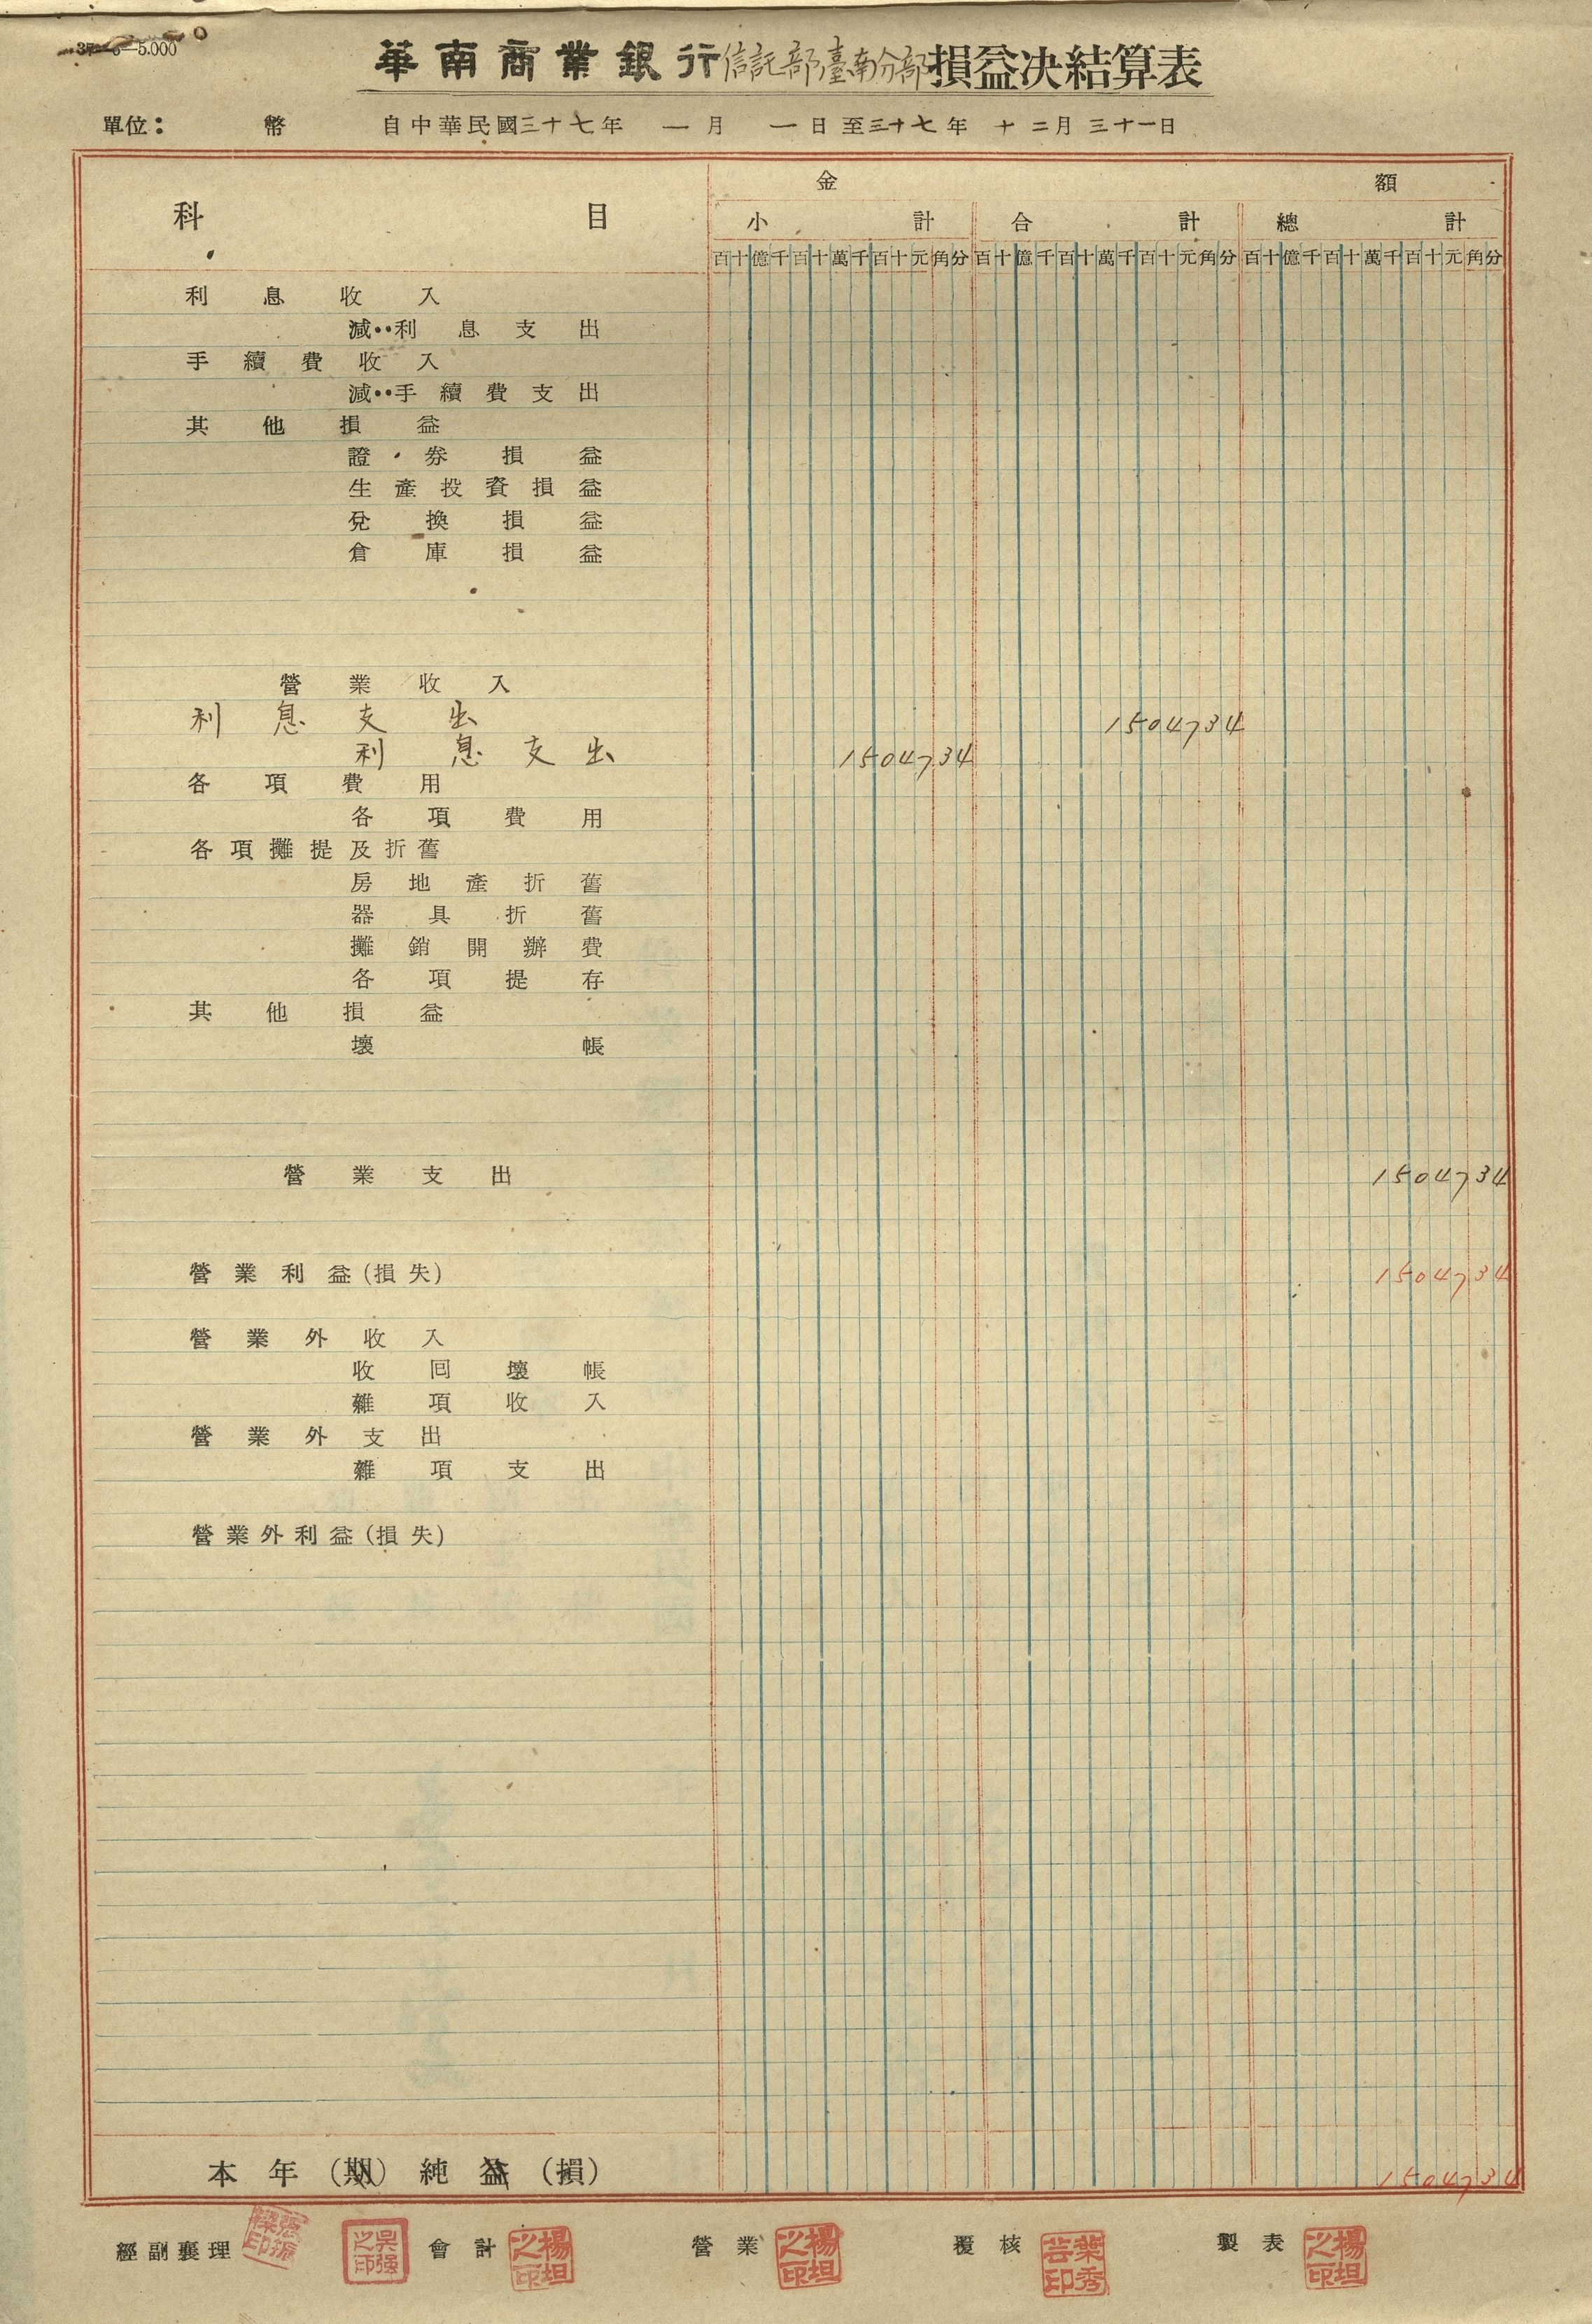 37—6—5.000
華南商業銀行信託部臺南分部損益決結算表
單位： 幣 自中華民國三十七年 一月 一日至三十七年 十二月三十一日
金 額
科 目
小 計 合 計 總 計
百十億千百十萬千百十元角分 百十億千百十萬千百十元角分 百十億千百十萬千百十元角分
利息收入
減：利息支出
手續費收入
減：手續費支出
其他損益
證券損益
生產投資損益
兌換損益
倉庫損益
營業收入
利息支出 1504734
利息支出 1504734
各項費用
各項費用
各項攤提及折舊
房地產折舊
器具折舊
攤銷開辦費
各項提存
其他損益
壞帳
營業支出 1504734
營業利益(損失) 1504734
營業外收入
收回壞帳
雜項收入
營業外支出
雜項支出
營業外利益(損失)
本年(期)純益(損) 1504734
經副襄理 吳强之印 會計 楊坦之印 營業 楊坦之印 覆核 葉秀芸印 製表 楊坦之印